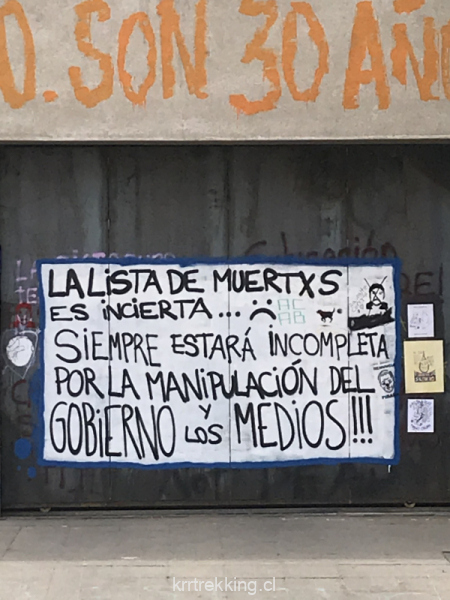 O. SON 30 AÑ
LA LISTA DE MUERTXS
ES INCIERTA... :(
AC
AB
SIEMPRE ESTARÁ INCOMPLETA
POR LA MANIPULACIÓN DEL
GOBIERNO Y LOS MEDIOS!!!
krrtrekking.cl